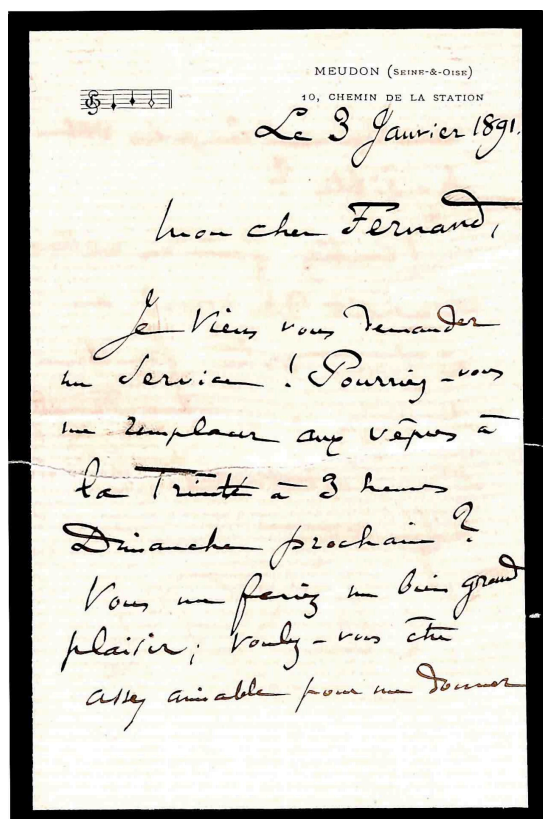 MEUDON (SEINE-&-OISE)
10, CHEMIN DE LA STATION
Le 3 Janvier 1891.
Mon cher Fernand,
Je viens vous demander
un service ! Pourriez-vous
me remplacer aux vêpres à
la Trinité à 3 heures
Dimanche prochain ?
Vous me feriez un bien grand
plaisir ; voulez-vous être
assez aimable pour me donner